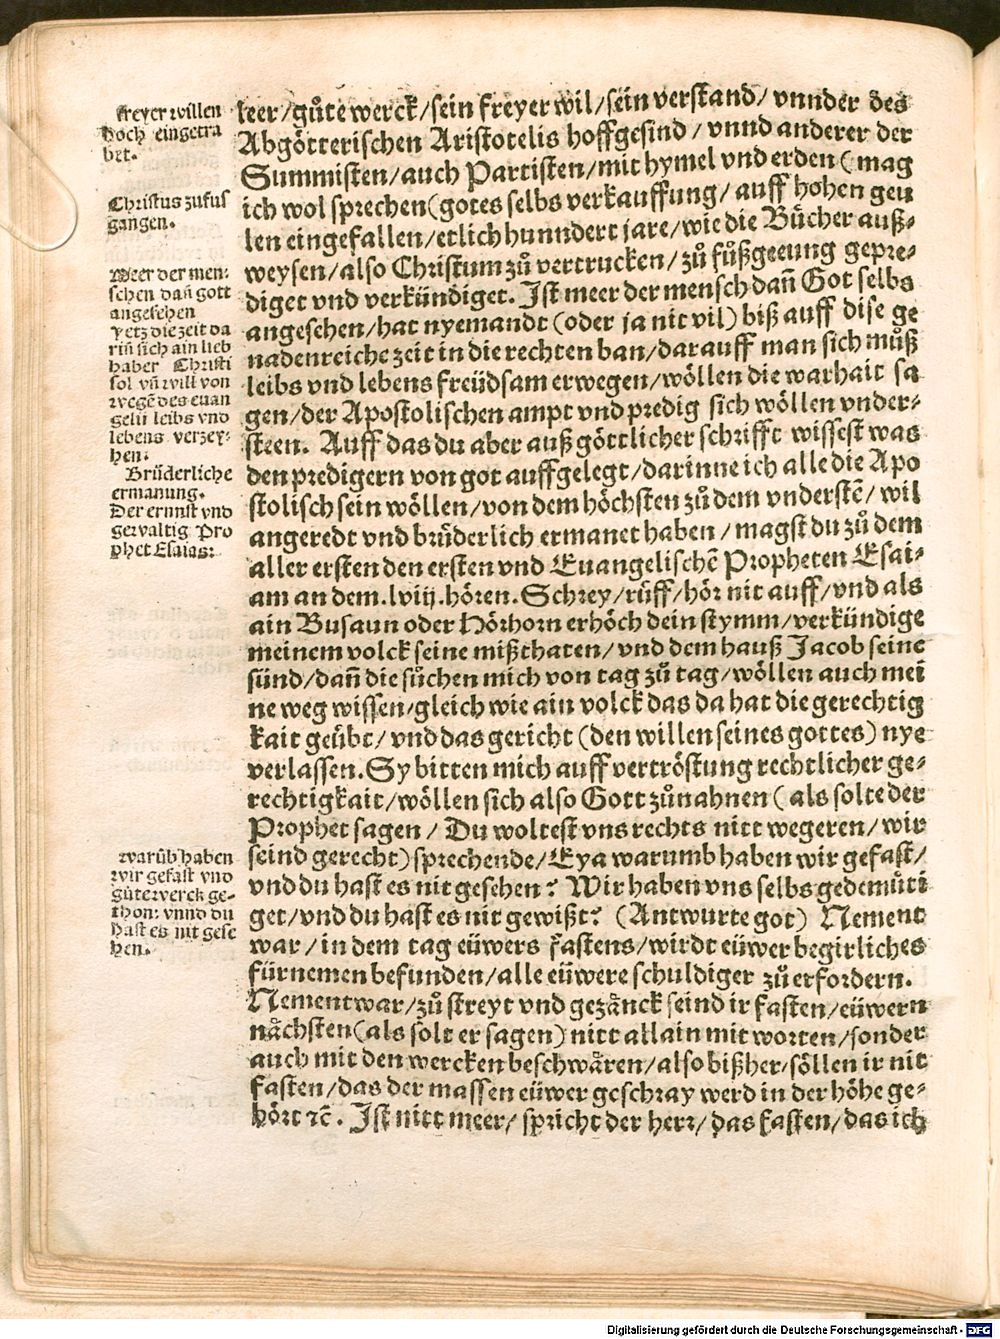 freyer willen
hoch eingetra
bet.
Christus zufuſ
gangen.
Meer der men⸗
schen dañ gott
angesehen
yetz die zeit da
riñ sich ain lieb
haber Christi
sol vñ will von
wegẽ des euan
gelij leibs vnd
lebens verzey⸗
hen.
Brüderliche
ermanung.
Der ernnst vnd
gewaltig Pro
phet Esaias:
warũb haben
wir gefast vnd
gůte werck ge⸗
thon: vnnd du
hast es nit gese
hen.
leer/ gůte werck/ sein freyer wil/ sein verstand/ vnnder des
Abgötterischen Aristotelis hoffgesind/ vnnd anderer der
Summisten/ auch Partisten/ mit hymel vnd erden (mag
ich wol sprechen (gotes selbs verkauffung/ auff hohen geu
len eingefallen/ etlich hunndert jare/ wie die Bücher auß⸗
weysen/ also Christum zů vertrucken/ zů fůßgeeung gepre⸗
diget vnd verkündiget. Ist meer der mensch dañ Got selbs
angesehen/ hat nyemandt (oder ja nit vil) biß auff dise ge
nadenreiche zeit in die rechten ban/ darauff man sich můß
leibs vnd lebens freüdsam erwegen/ wöllen die warhait sa
gen/ der Apostolischen ampt vnd predig sich wöllen vnder⸗
steen. Auff das du aber auß göttlicher schrifft wissest was
den predigern von got auffgelegt/ darinne ich alle die Apo
stolisch sein wöllen/ von dem höchsten zů dem vnderstẽ/ wil
angeredt vnd brüderlich ermanet haben/ magst du zů dem
aller ersten den ersten vnd Euangelischẽ Propheten Esai⸗
am an dem .lviij. hören. Schrey/ rüff/ hör nit auff/ vnd als
ain Busaun oder Hörhorn erhöch dein stymm/ verkündige
meinem volck seine mißthaten/ vnd dem hauß Jacob seine
sünd/ dañ die süchen mich von tag zů tag/ wöllen auch mei
ne weg wissen/ gleich wie ain volck das da hat die gerechtig
kait geübt/ vnd das gericht (den willen seines gottes) nye
verlassen. Sy bitten mich auff vertröstung rechtlicher ge⸗
rechtigkait/ wöllen sich also Gott zůnahnen (als solte der
Prophet sagen/ Du woltest vns rechts nitt wegeren/ wir
seind gerecht) sprechende/ Eya warumb haben wir gefast/
vnd du hast es nit gesehen? Wir haben vns selbs gedemüti
get/ vnd du hast es nit gewißt? (Antwurte got) Nement
war/ in dem tag eüwers fastens/ wirdt eüwer begirliches
fürnemen befunden/ alle eüwere schuldiger zů erfordern.
Nement war/ zů streyt vnd gezänck seind ir fasten/ eüwern
nächsten (als solt er sagen) nitt allain mit worten/ sonder
auch mit den wercken beschwären/ also bißher/ söllen ir nit
fasten/ das der massen eüwer geschray werd in der höhe ge⸗
hört ꝛc̃. Ist nitt meer/ spricht der herr/ das fasten/ das ich
Digitalisierung gefördert durch die Deutsche Forschungsgemeinschaft - DFG